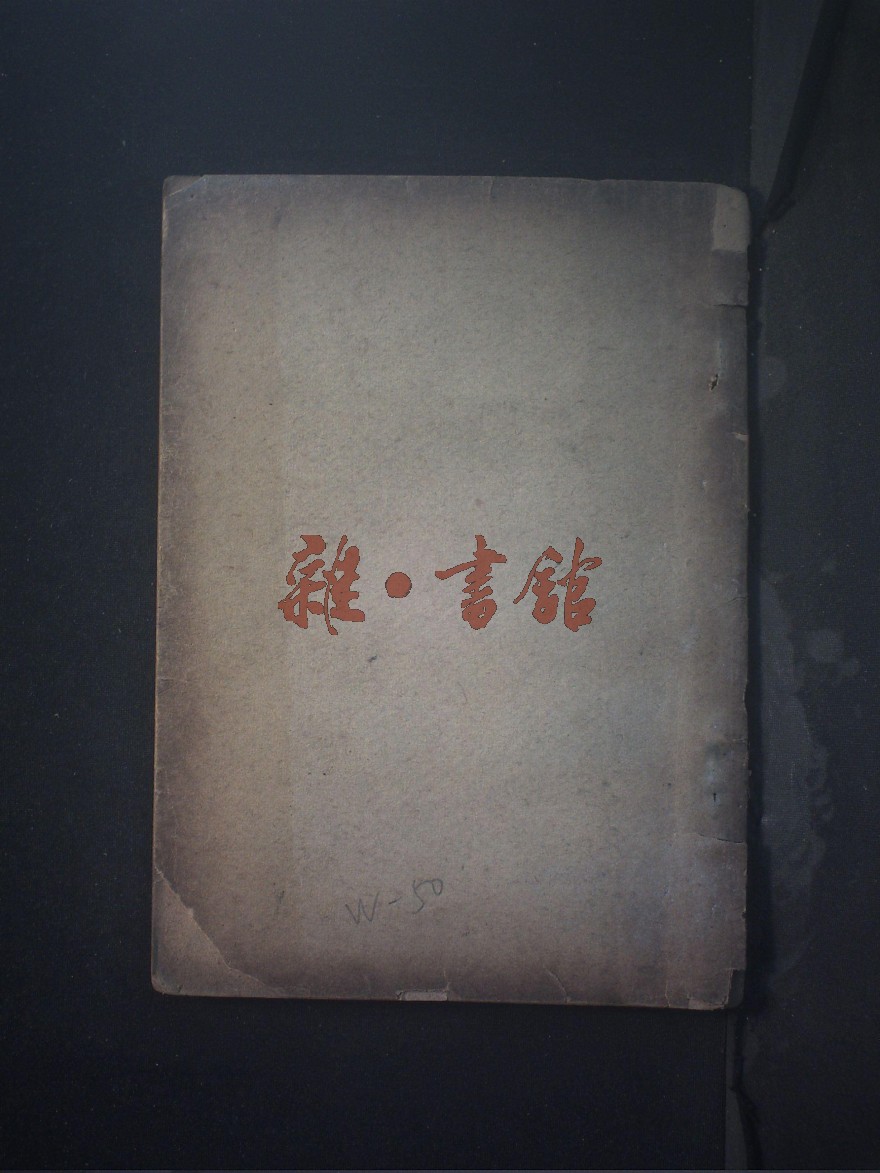 雜·書館
W-50